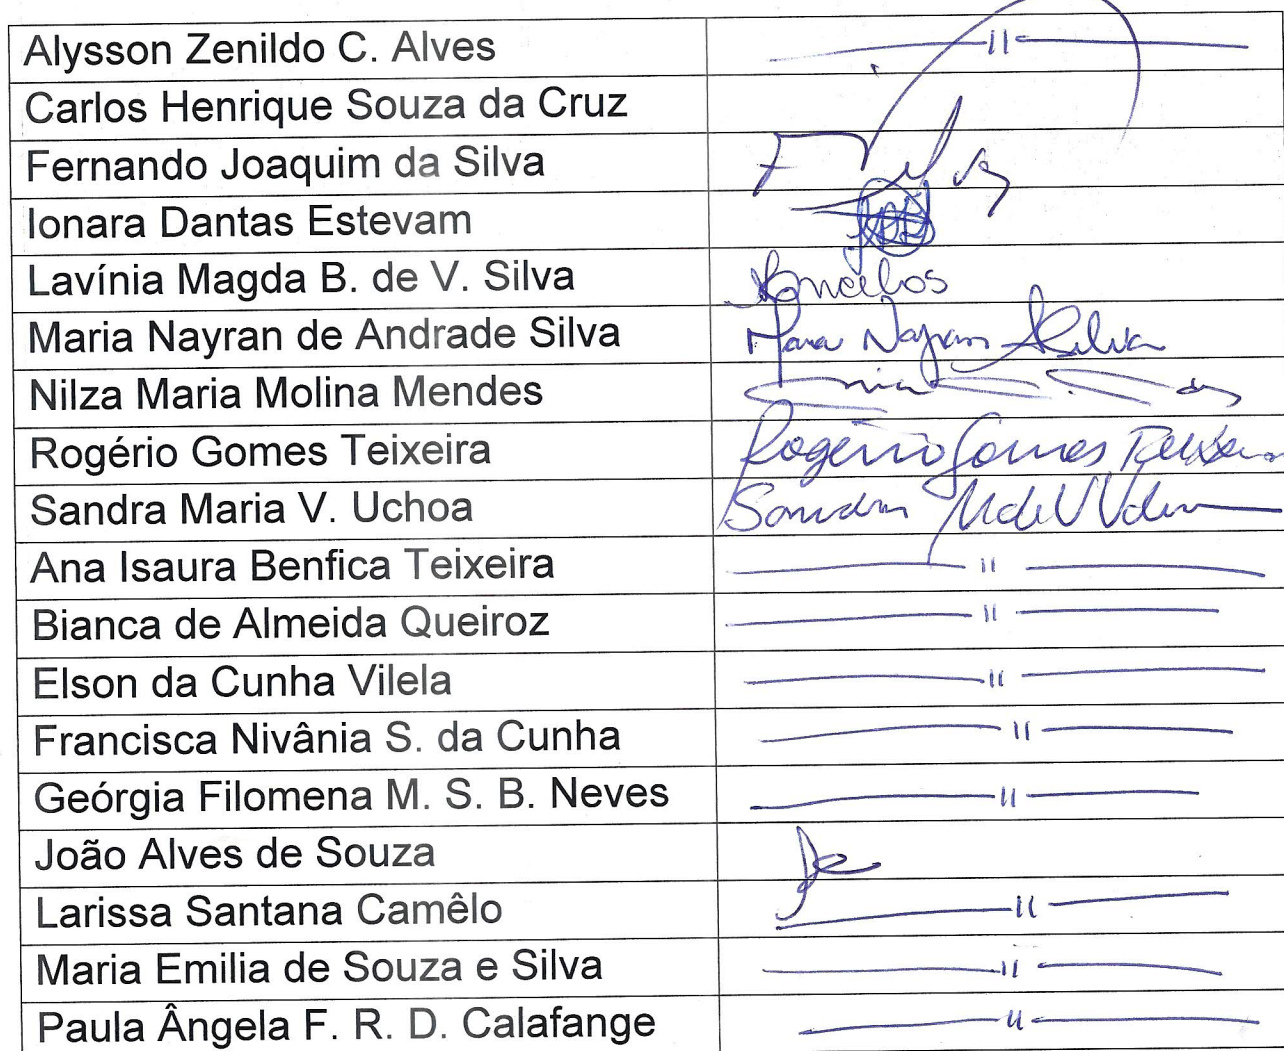 Alysson Zenildo C. Alves —— 11 ——
Carlos Henrique Souza da Cruz
Fernando Joaquim da Silva
Ionara Dantas Estevam
Lavínia Magda B. de V. Silva
Maria Nayran de Andrade Silva Maria Nayran A Silva
Nilza Maria Molina Mendes
Rogério Gomes Teixeira Rogério Gomes Teixeira
Sandra Maria V. Uchoa Sandra M de V
Ana Isaura Benfica Teixeira —— 11 ——
Bianca de Almeida Queiroz —— 11 ——
Elson da Cunha Vilela —— 11 ——
Francisca Nivânia S. da Cunha —— 11 ——
Geórgia Filomena M. S. B. Neves —— 11 ——
João Alves de Souza
Larissa Santana Camêlo —— 11 ——
Maria Emilia de Souza e Silva —— 11 ——
Paula Ângela F. R. D. Calafange —— 11 ——